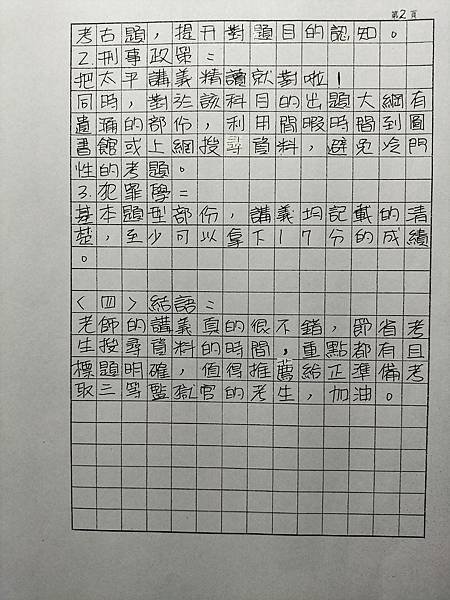 第2頁
考古題，提升對題目的認知。
2.刑事政策：
把太平講義精讀就對啦！
同時，對於該科目的出題大綱有
遺漏的部份，利用閒暇時間到圖
書館或上網搜尋資料，避免冷門
性的考題。
3.犯罪學：
基本題型部份，講義均記載的清
楚，至少可以拿下17分的成績
。
〈四〉結語：
老師的講義真的很不錯，節省考
生搜尋資料的時間，重點都有且
標題明確，值得推薦給正準備考
取三等監獄官的老生，加油。